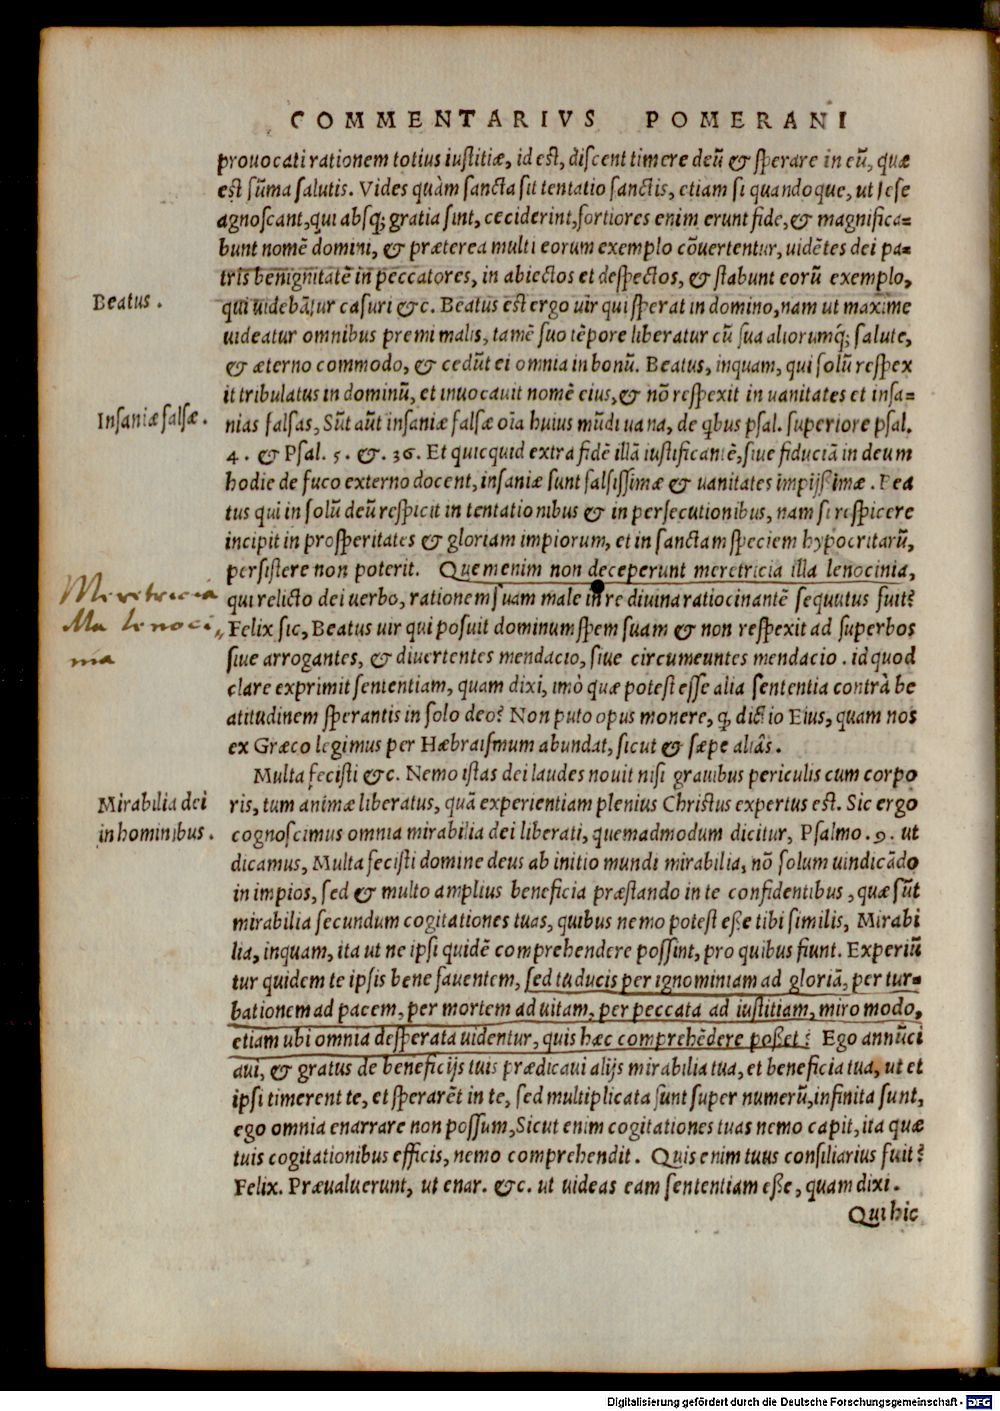 COMMENTARIVS POMERANI
prouocati rationem totius iustitiæ, id est, discent timere deū & sperare in eū, quæ
est sūma salutis. Vides quàm sancta sit tentatio sanctis, etiam si quandoque, ut sese
agnoscant, qui absq; gratia sint, ceciderint, fortiores enim erunt fide, & magnifica=
bunt nomē domini, & præterea multi eorum exemplo cōuertentur, uidētes dei pa=
tris benignitatē in peccatores, in abiectos et despectos, & stabunt eorū exemplo,
Beatus.
qui uidebātur casuri &c. Beatus est ergo uir qui sperat in domino, nam ut maxime
uideatur omnibus premi malis, tamē suo tēpore liberatur cū sua aliorumq́; salute,
& æterno commodo, & cedūt ei omnia in bonū. Beatus, inquam, qui solū respex
it tribulatus in dominū, et inuocauit nomē eius, & nō respexit in uanitates et insa=
Insaniæ falsæ.
nias falsas, Sūt aūt insaniæ falsæ oīa huius mūdi uana, de q̄bus psal. superiore psal.
4. & Psal. 5. &. 36. Et quicquid extra fidē illā iustificantē, siue fiduciā in deum
hodie de fuco externo docent, insaniæ sunt falsissimæ & uanitates impijssimæ. Bea
tus qui in solū deū respicit in tentationibus & in persecutionibus, nam si respicere
incipit in prosperitates & gloriam impiorum, et in sanctam speciem hypocritarū,
persistere non poterit. Quem enim non deceperunt meretricia illa lenocinia,
Meretricia
illa lenoci„
nia
qui relicto dei uerbo, rationem suam male in re diuina ratiocinantē sequutus fuit?
Felix sic, Beatus uir qui posuit dominum spem suam & non respexit ad superbos
siue arrogantes, & diuertentes mendacio, siue circumeuntes mendacio. id quod
clare exprimit sententiam, quam dixi, imò quæ potest esse alia sententia contrà be
atitudinem sperantis in solo deo? Non puto opus monere, q̃, dictio Eius, quam nos
ex Græco legimus per Hæbraismum abundat, sicut & sæpe aliâs.
Multa fecisti &c. Nemo istas dei laudes nouit nisi grauibus periculis cum corpo
Mirabilia dei
in hominibus.
ris, tum animæ liberatus, quā experientiam plenius Christus expertus est. Sic ergo
cognoscimus omnia mirabilia dei liberati, quemadmodum dicitur, Psalmo. 9. ut
dicamus, Multa fecisti domine deus ab initio mundi mirabilia, nō solum uindicādo
in impios, sed & multo amplius beneficia præstando in te confidentibus, quæ sūt
mirabilia secundum cogitationes tuas, quibus nemo potest esse tibi similis, Mirabi
lia, inquam, ita ut ne ipsi quidē comprehendere possint, pro quibus fiunt. Experiū
tur quidem te ipsis bene fauentem, sed tu ducis per ignominiam ad gloriā, per tur=
bationem ad pacem, per mortem ad uitam, per peccata ad iustitiam, miro modo,
etiam ubi omnia desperata uidentur, quis hæc comprehēdere posset? Ego annūci
aui, & gratus de beneficijs tuis prædicaui alijs mirabilia tua, et beneficia tua, ut et
ipsi timerent te, et sperarēt in te, sed multiplicata sunt super numerū, infinita sunt,
ego omnia enarrare non possum, Sicut enim cogitationes tuas nemo capit, ita quæ
tuis cogitationibus efficis, nemo comprehendit. Quis enim tuus consiliarius fuit?
Felix. Præualuerunt, ut enar. &c. ut uideas eam sententiam esse, quam dixi.
Qui hic
Digitalisierung gefördert durch die Deutsche Forschungsgemeinschaft - DFG